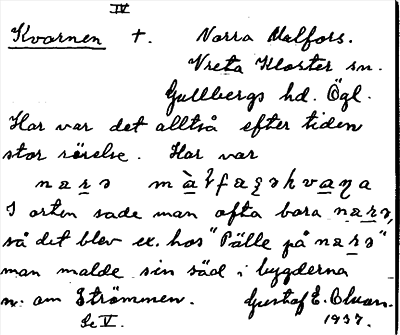 IV
Kvarnen +. Norra Malfors.
Vreta Kloster sn.
Gullbergs hd. Ögl.
Har var det alltså efter tiden
stor rörelse. Har var
I orten sade man ofta bara
så det blev ex. hos "Pälle på
man malde sin säd i bygderna
n. om Strömmen. Gustaf E. Olson.
Se V. 1937.